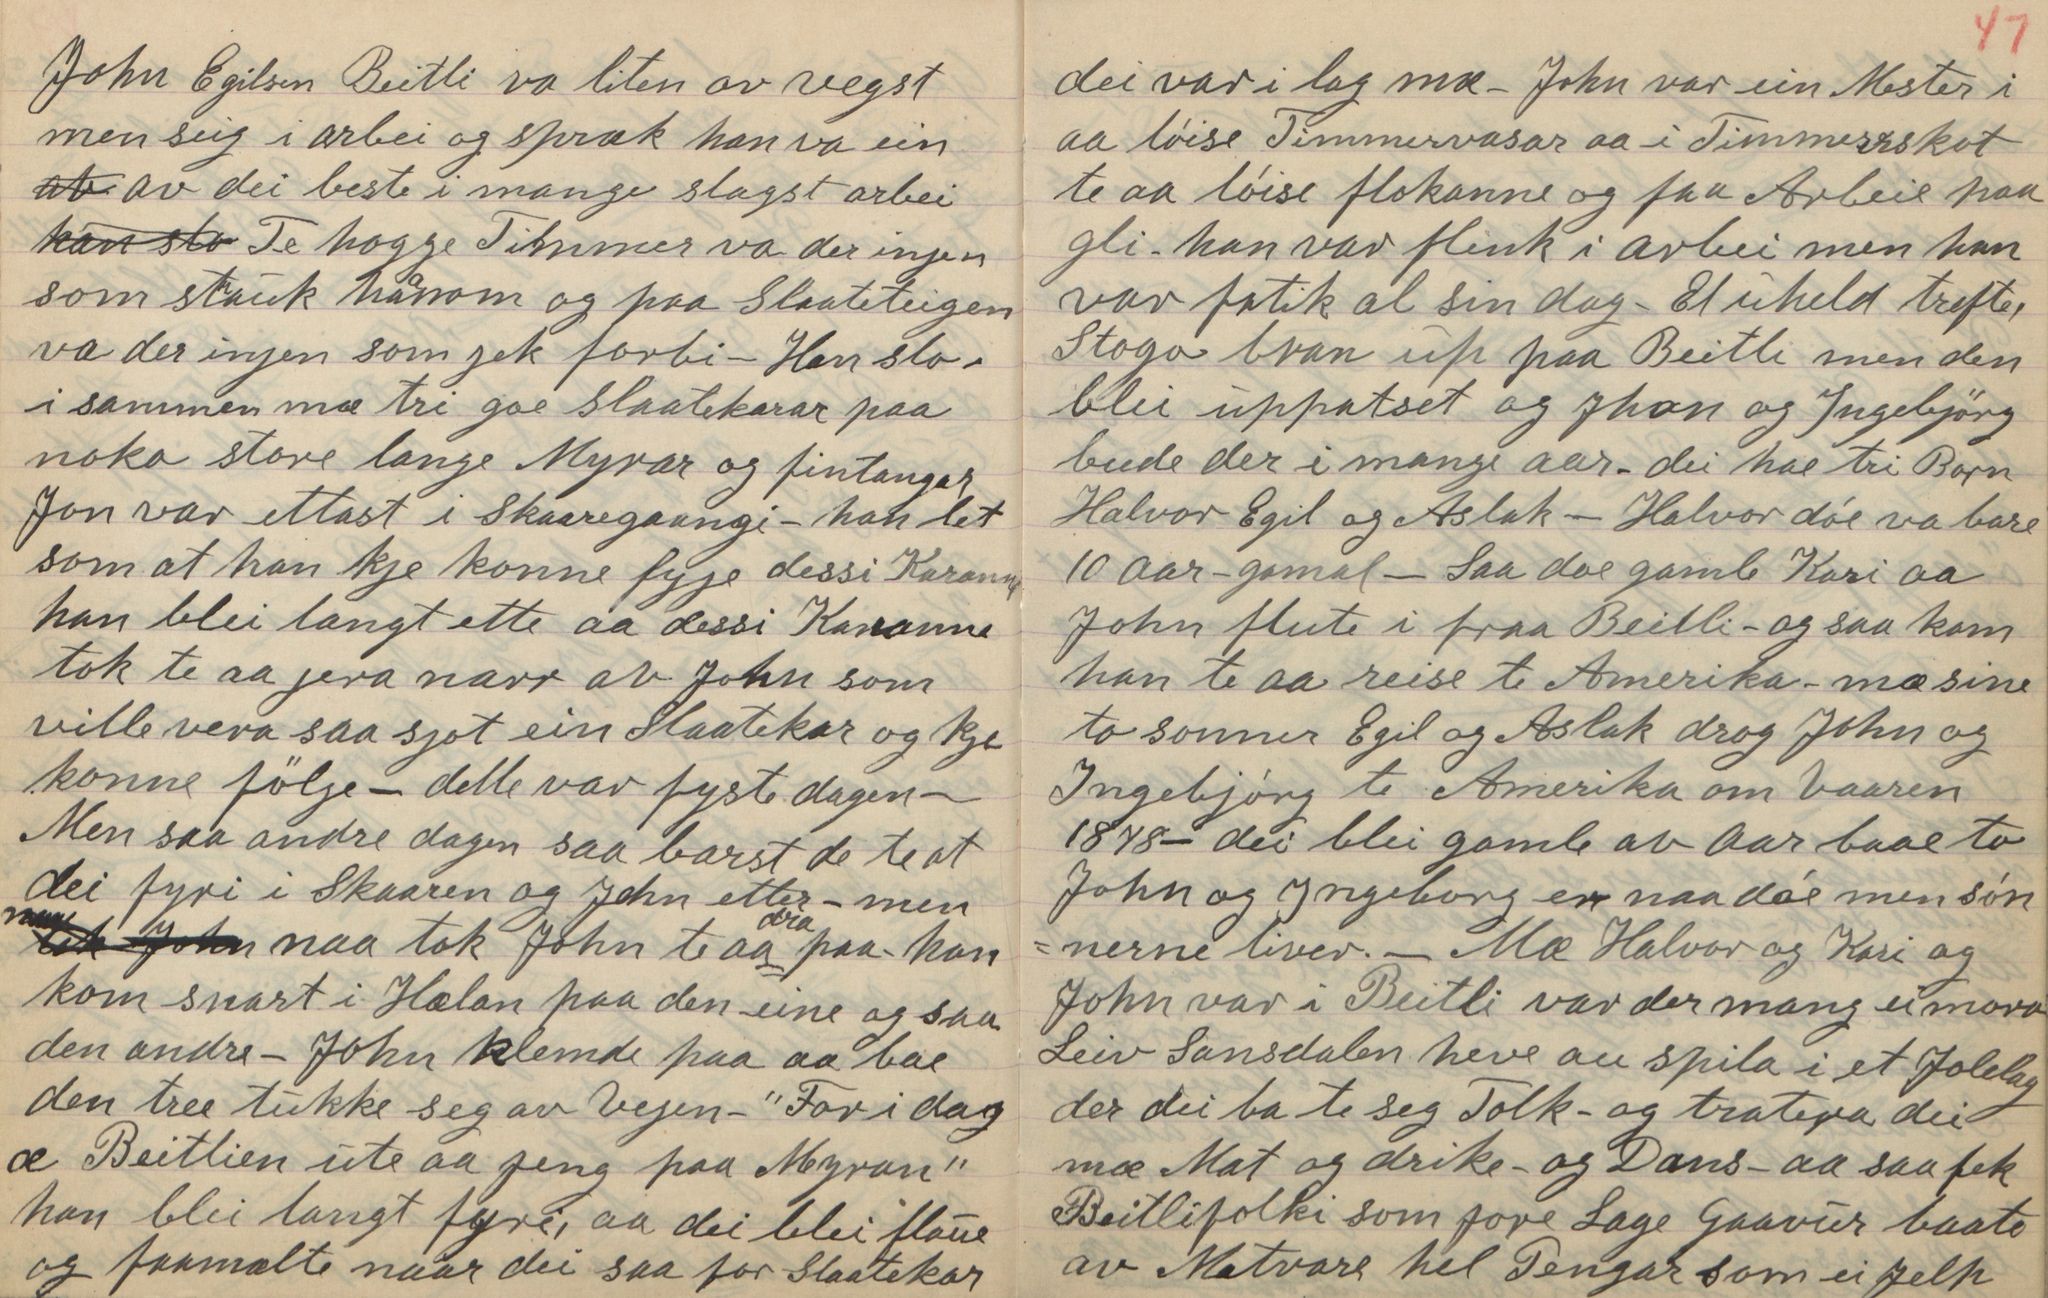 John Egilsen Beitli va liten av vegst
men seig i arbei og spræk han va ein
av av dei beste i mange slagst arbei
han slo Te hogge Timmer va der injen
som strauk hånom og paa Slaateteigen
va der injen som jek forbi – Han slo
i sammen mæ tri goe Slaatekarar paa
noko store lange Myrar og fintangar
Jon var ettast i Skaaregaangi – han let
som at han kje konne fyje dessi Karanne
han blei langt ette aa dessi Karanne
tok te aa jera narr av John som
ville vera saa sjot ein Slaatekar og kje
konne fölge – dette var fyste dagen –
Men saa andre dagen saa barst de te at
dei fyri i Skaaren og John etter – men
naa tok John te aa dra paa – han
kom snart i Hælan paa den eine og saa
den andre – John klemde paa aa bae
den tree tukke seg av Vejen – "For i dag
æ Beitlien ute aa jeng paa Myran"
han blei langt fyri, aa dei blei flaue
og faamælte naar dei saa for Slaatekar
47
dei var i lag mæ – John var ein Mester i
aa löise Timmervasar aa i Timmerskot
te aa löise flokanne og faa Arbeie paa
gli – han var flink i arbei men han
var fatik al sin dag – Et uheld trefte,
Stogo bran up paa Beitli men den
blei uppatset og Jhon og Ingebjörg
bude der i mange aar – dei hae tri Born
Halvor Egil og Aslak – Halvor döe va bare
10 Aar – gamal – Saa doe gamle Kari aa
John flute i fraa Beitli – og saa kom
han te aa reise te Amerika – mæ sine
to sonner Egil og Aslak drog John og
Ingebjörg te Amerika om Vaaren
1878 – dei blei gamle av Aar baae to
John og Ingeborg er naa döe men sön
= nerne liver. – Mæ Halvor og Kari og
John var i Beitli var der mang ei mora
Leiv Sansdalen heve au spila i et Jolelag
der dei ba te seg Folk – og tratera dei
mæ Mat og drike – og Dans – aa saa fek
Beitlifolki som jore Lage Gaavur baate
av Matvare hel Pengar som ei jelp